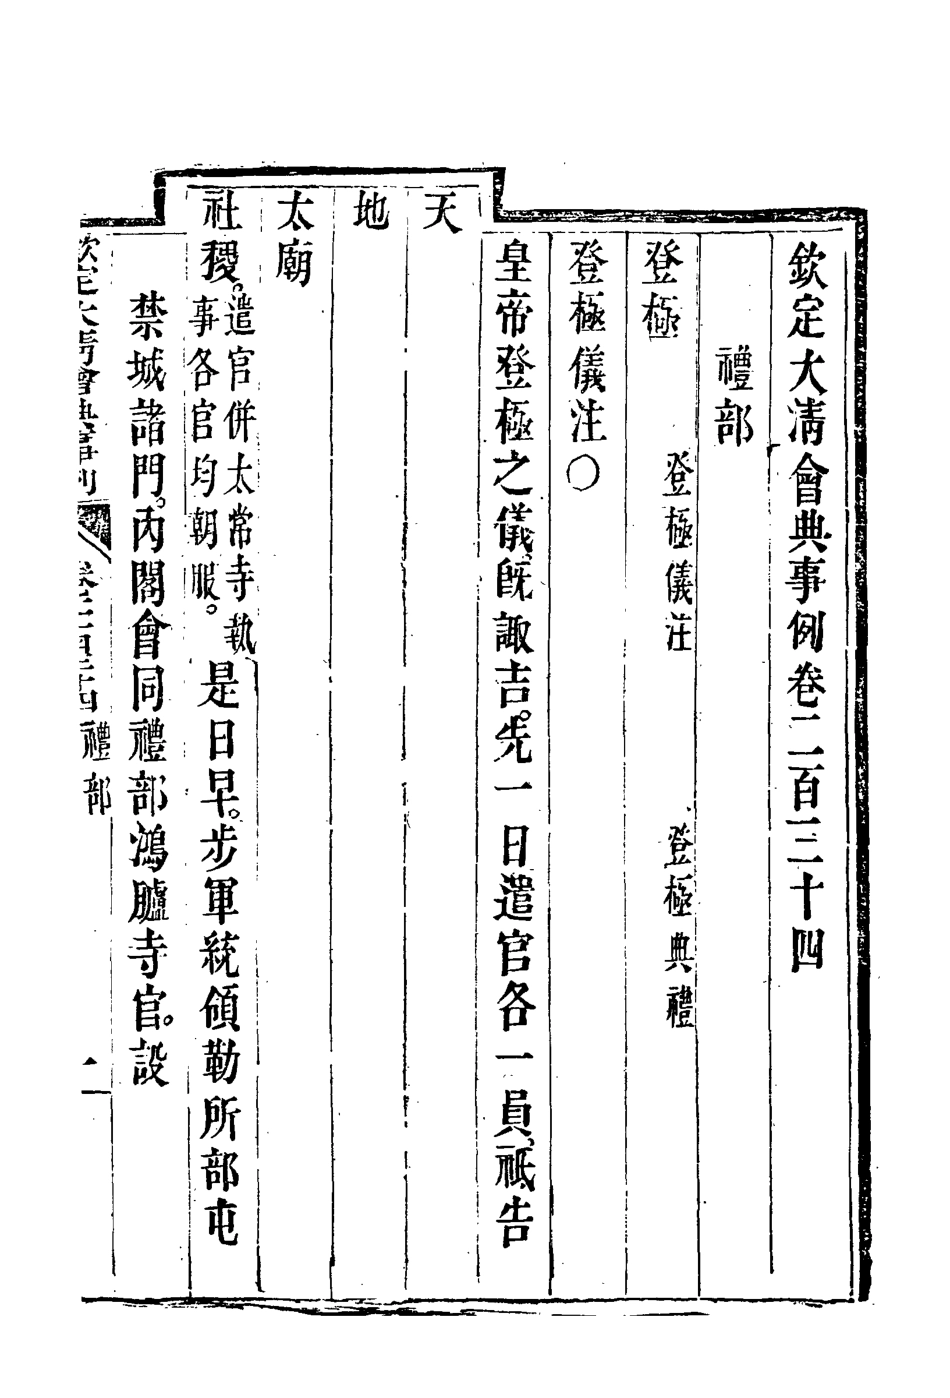 欽定大淸會典事例卷二百三十四
禮部
登極　登極儀注　登極典禮
登極儀注〇
皇帝登極之儀旣諏吉。先一日遣官各一員祗告
天
地
太廟
社稷。遣官併太常寺執事各官均朝服。是日早。步軍統領勒所部屯
禁城諸門。內閣會同禮部鴻臚寺官。設
欽定大淸會典事例　卷二百三十四　禮部　一